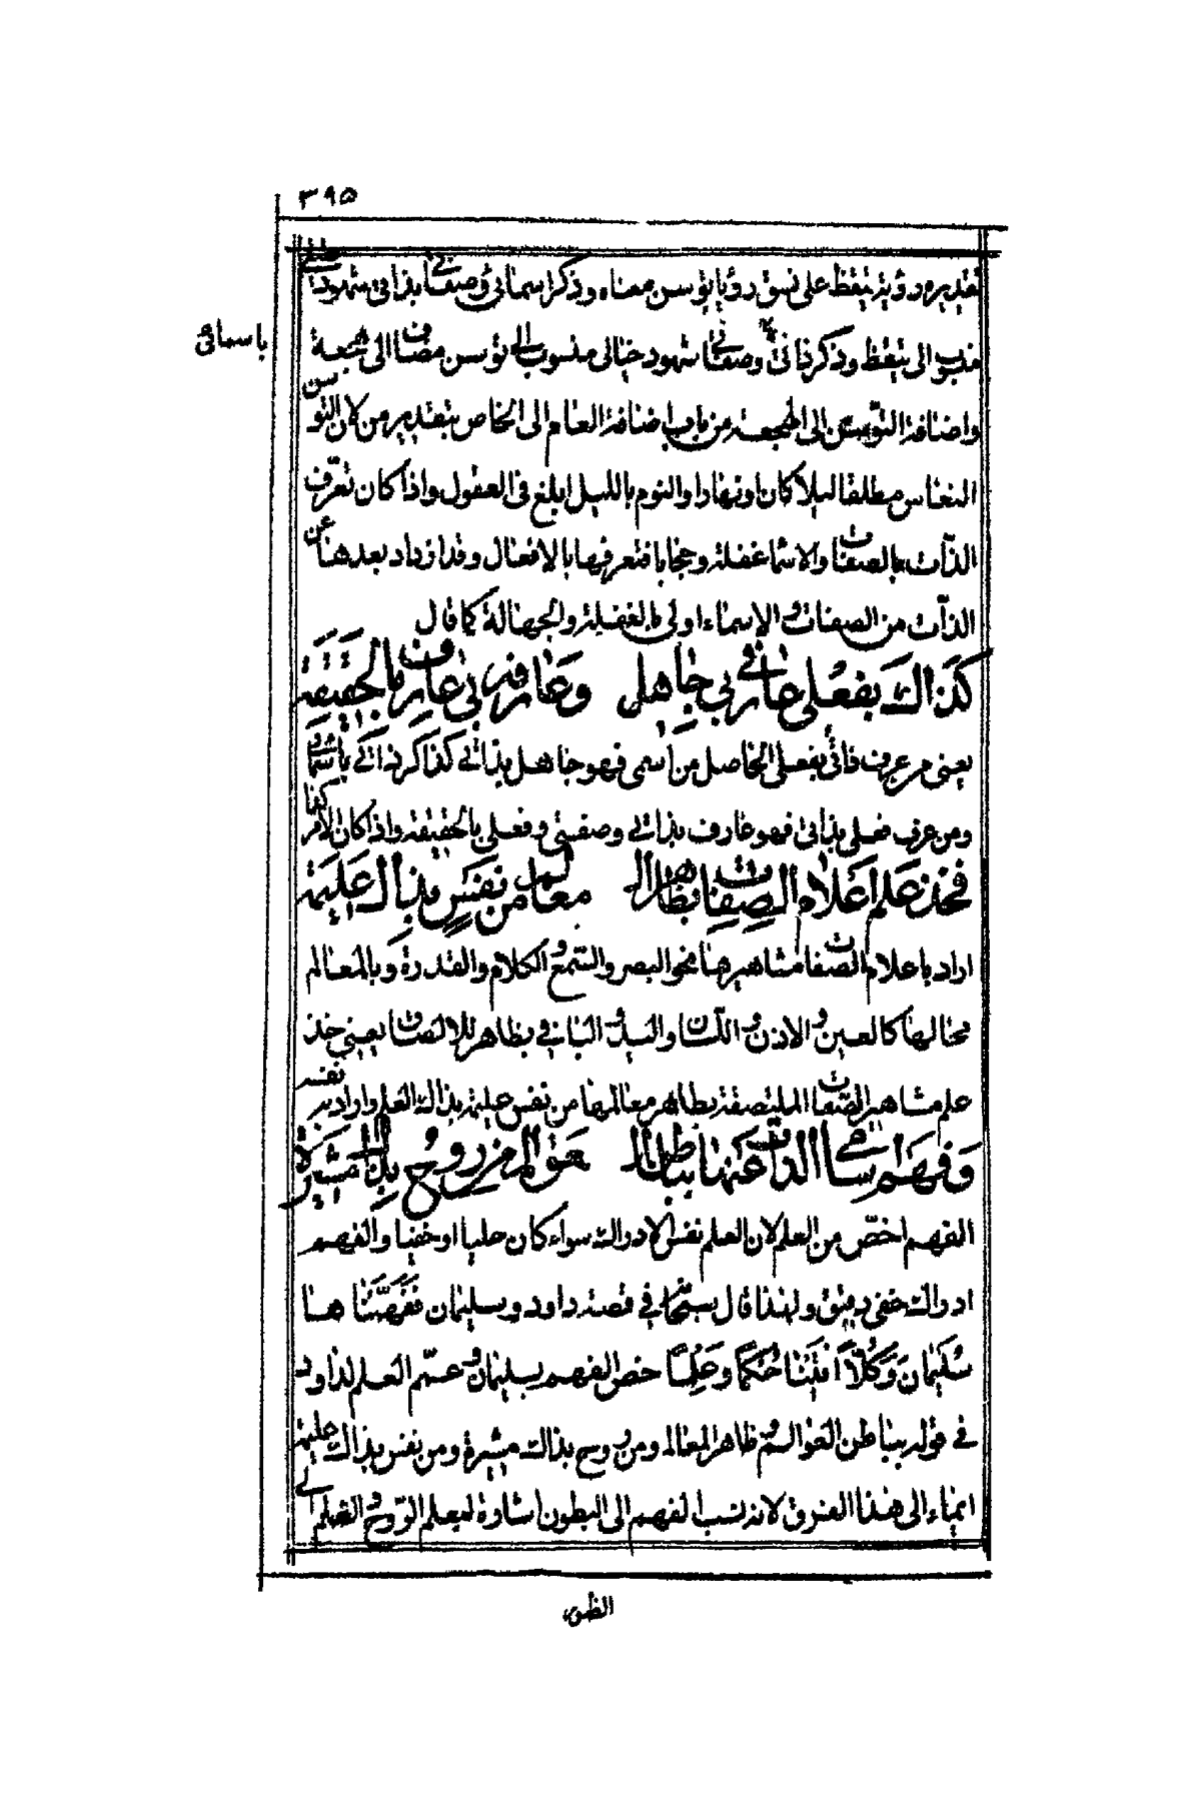 ٣٩٥
تقديره رؤية تيقظ على نسق رؤيا توسن معناه وذكر اسمائى وصفاتى بذاتى شهود حسّى
باسمائى
منسوب الى تيقظ وذكر ذاتى وصفاتى شهود خيالى منسوب الى توسن مضاف الى هجعة
واضافة التوسّن الى الهجعة من باب اضافة العام الى الخاص بتقدير من لان التوسن
النعاس مطلقا ليلا كان او نهارا والنوم بالليل ابلغ فى العقول واذا كان تعرّف
الذّات بالصفات والاسما غفلة وحجابا فتعرفها بالافعال وقد ازداد بعد هنا عن
الذّات من الصفات والاسماء اولى بالغفلة والجهالة كما قال
كَذاك بفعلى عارفى بى جاهلى وعارفه بى عارف بالحقيقة
يعنى من عرف ذاتى بفعلى الحاصل من اسمى فهو جاهل بذاتى كذاكر ذاتى باسمائى
ومن عرف فعلى بذاتى فهو عارف بذاتى وصفتى وفعلى بالحقيقة واذا كان الامر كذا
فخذ علم اعلام الصفات بظاهر ال معالم من نفس بذاك عليمة
اراد باعلام الصفات مشاهيرها نحو البصر والسّمع والكلام والقدرة وبالمعالم
محالها كالعين والاذن واللّسان واليد والباء فى بظاهر للالصاق يعنى خذ
علم مشاهير الصّفات الملتصقة بظاهر معالمها من نفس عليمة بذاك العلم واراد به نفسه
وفهم اسامى الذات عنها بباطن ال عوالم من روح بذاك مشيرة
الفهم اخصّ من العلم لان العلم نفس الادراك سواء كان جليا او خفيا والفهم
ادراك خفى دقيق ولهذا قال سبحانه فى قصة داود وسليمان ففهّمناها
سُلَيمانَ وَكُلّاً اتَينا حُكماً وَعِلماً خص الفهم بسليمان وعمّم العلم لداود
فى قوله بباطن العوالم وظاهر المعالم ومن روح بذاك مشيرة ومن نفس بذاك عليمة
ايماء الى هذا الفرق لانه نسب الفهم الى البطون اشارة لبعلم الرّوح والعلم الى
الظهور